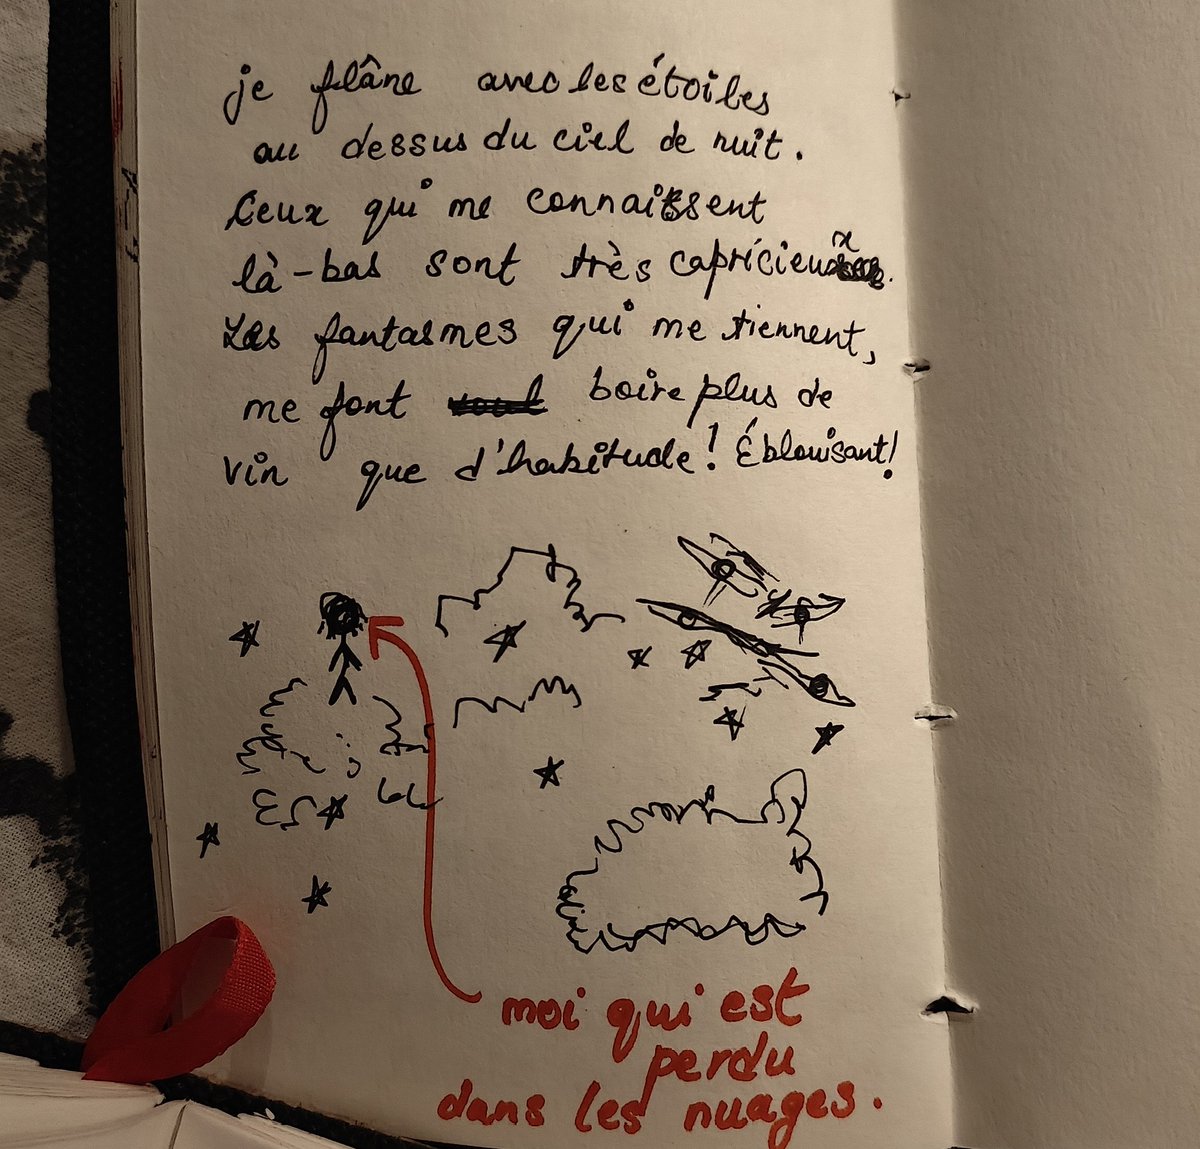 je flâne avec les étoiles
au dessus du ciel de nuit.
Ceux qui me connaissent
là-bas sont très capricieux.
Les fantasmes qui me tiennent,
me font boire plus de
vin que d'habitude! Éblouisant!
moi qui est
perdu
dans les nuages.